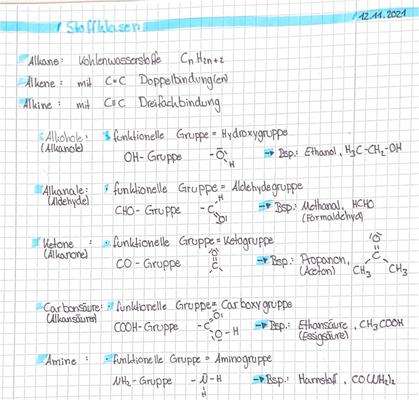 12.11.2021
Stoffklassen
Alkane: Kohlenwasserstoffe CnH2n+2
Alkene: mit C=C Doppelbindung(en)
Alkine: mit C≡C Dreifachbindung
Alkohole: funktionelle Gruppe = Hydroxygruppe
(Alkanole) OH-Gruppe -O-H → Bsp.: Ethanol, H3C-CH2-OH
Alkanale: funktionelle Gruppe = Aldehydegruppe
(Aldehyde) CHO-Gruppe -C H O → Bsp.: Methanal, HCHO
(Formaldehyd)
Ketone: funktionelle Gruppe = Ketogruppe
(Alkanone) CO-Gruppe O C → Bsp.: Propanon, O C CH3 CH3
(Aceton)
Carbonsäure: funktionelle Gruppe = Carboxygruppe
(Alkansäure) COOH-Gruppe -C O O-H → Bsp.: Ethansäure, CH3COOH
(Essigsäure)
Amine: funktionelle Gruppe = Aminogruppe
NH2-Gruppe -N-H H → Bsp.: Harnstoff, CO(NH2)2